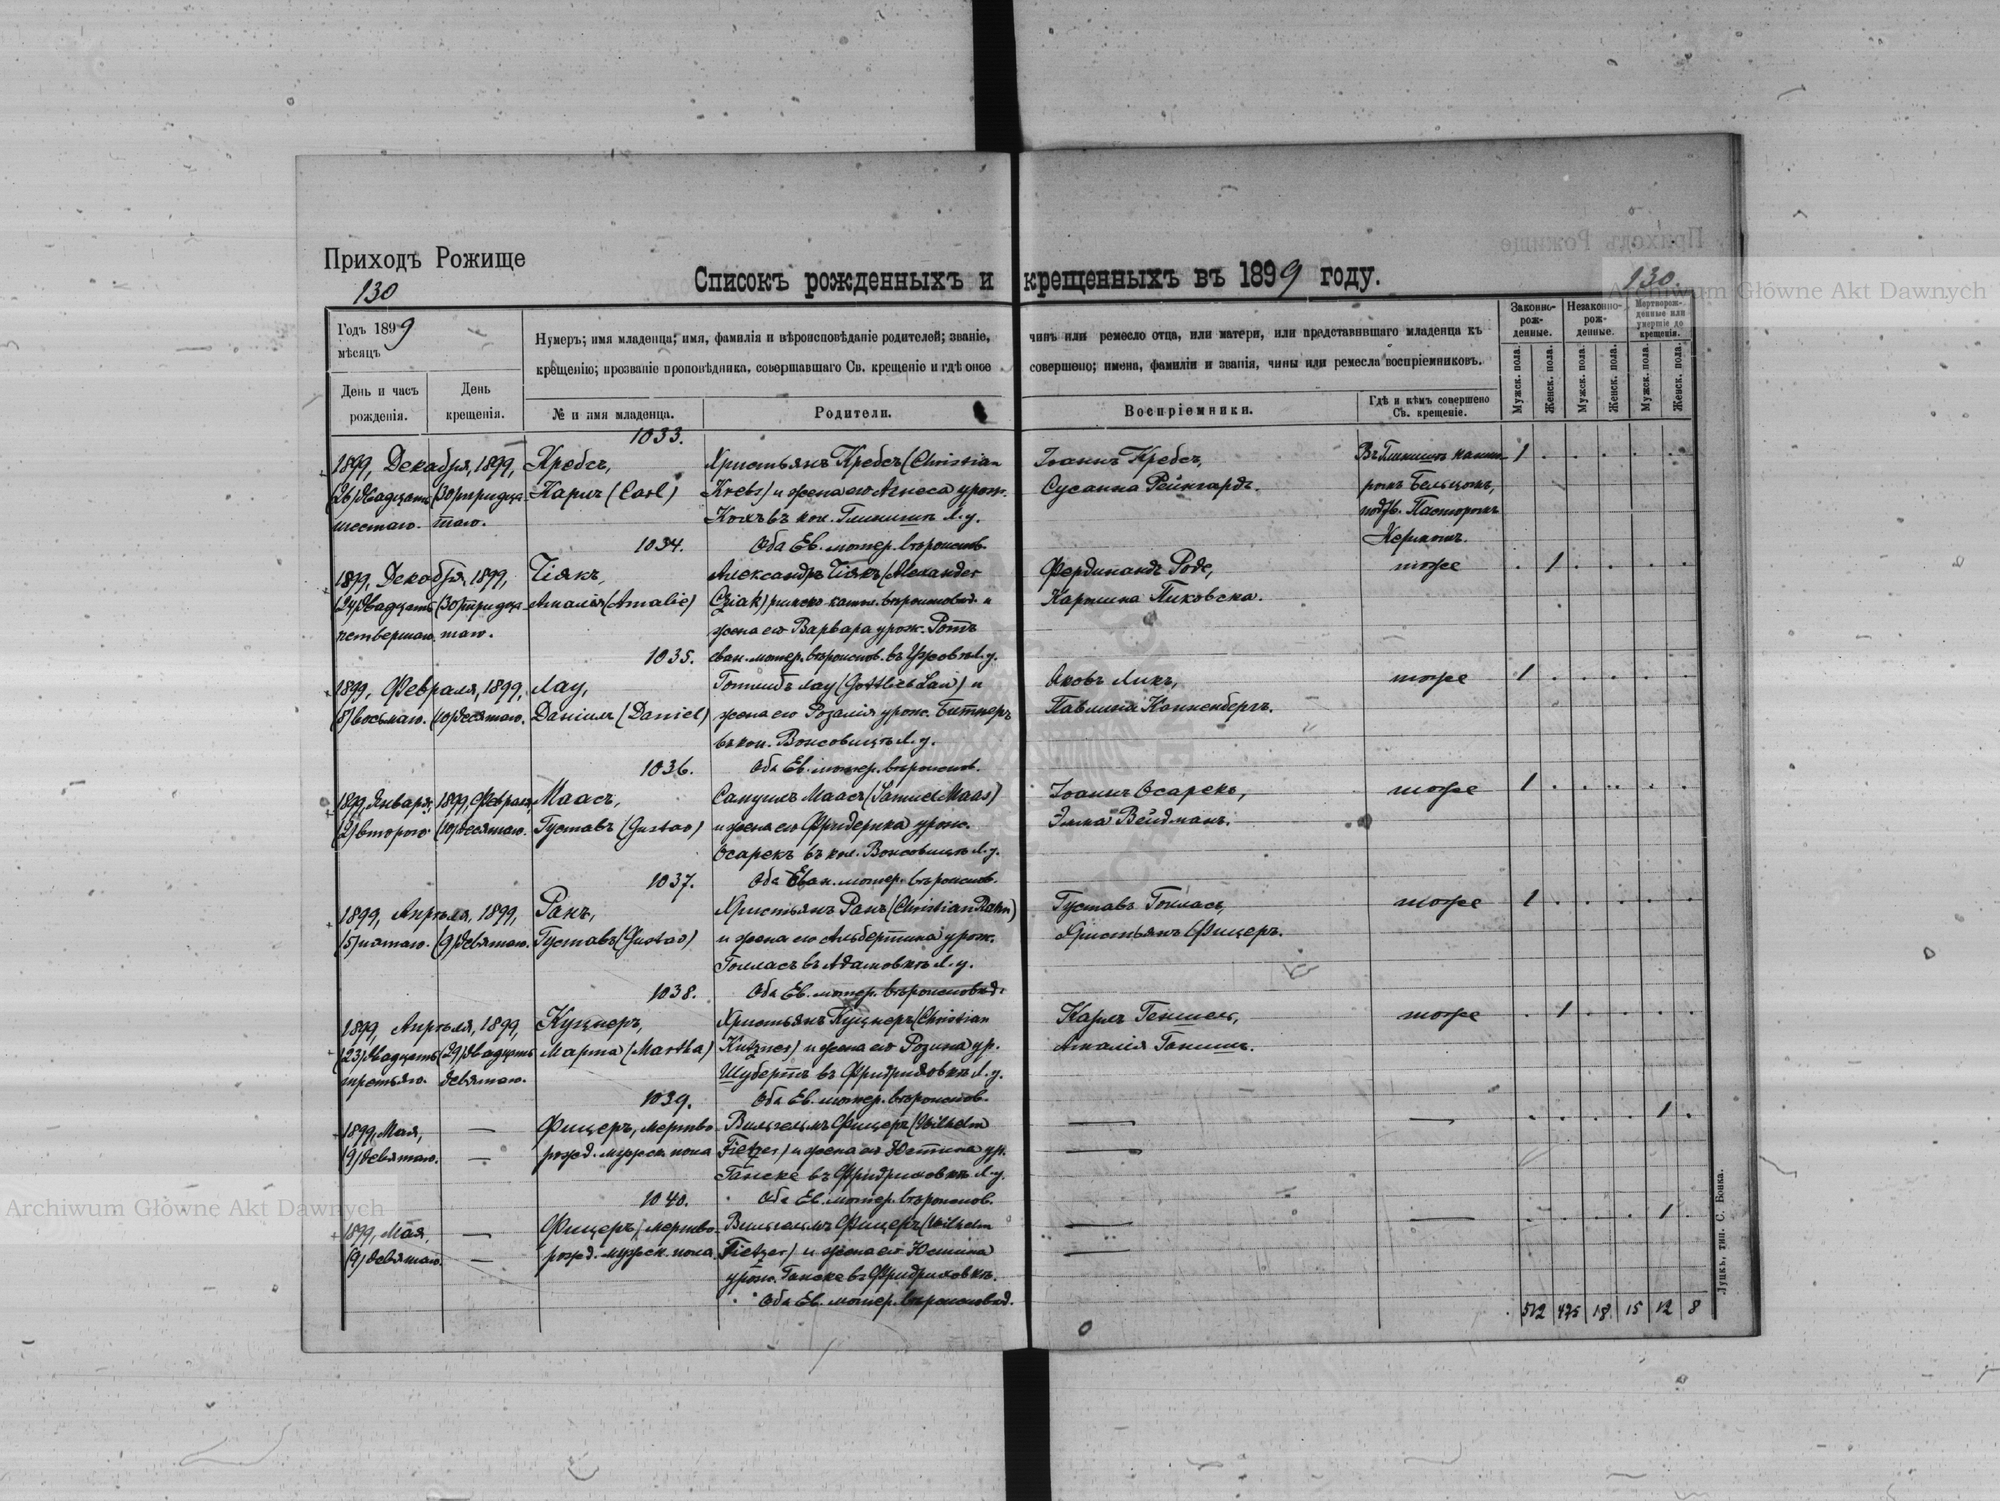 Приходъ Рожище
130
Списокъ рожденныхъ и крещенныхъ въ 1899 году.
130.
Archiwum Główne Akt Dawnych
Годъ 1899
мѣсяцъ
День и часъ рожденія.
День крещенія.
Нумеръ; имя младенца; имя, фамилія и вѣроисповѣданіе родителей; званіе, чинъ или ремесло отца, или матери, или представившаго младенца къ
крещенію; прозваніе проповѣдника, совершавшаго Св. крещеніе и гдѣ оное совершено; имена, фамиліи и званія, чины или ремесла воспріемниковъ.
№ и имя младенца.
Родители.
Воспріемники.
Гдѣ и кѣмъ совершено Св. крещеніе.
Законно-рож-денные.
Незаконно-рож-денные.
Мертворож-денные или умершіе до крещенія.
Мужск. пола.
Женск. пола.
Мужск. пола.
Женск. пола.
Мужск. пола.
Женск. пола.
1033.
1899, Декабря, 1899, Кребсъ, Христьянъ Кребсъ (Christian Іоаннъ Кребсъ, 1
(26) двадцать (30) тридца- Карлъ (Carl) Krebs) и жена его Агнеса урож. Сусанна Рейнгардъ.
шестаго. таго. въ кол. Л. у. подтв. Пасторомъ
1034. Оба Ев. лютер. вѣроиспов. Керномъ.
1899, Декабря, 1899, Чіякъ, Александръ Чіякъ (Alexander Фердинандъ Роде, тоже 1
(24) двадцать (30) тридца- Амалія (Amalie) Cziak) римско-катол. вѣроисповѣд. и Каролина Пиковска.
четвертаго. таго. жена его Варвара урож. Ротъ
1035. еван. лютер. вѣроиспов. въ Л. у.
1899, Февраля, 1899, Лау, Готлибъ Лау (Gottlieb Lau) и Яковъ Ликъ, тоже 1
(8) восьмаго. (10) десятаго. Даніилъ (Daniel) жена его Розалія урож. Битнеръ Павлина Канненбергъ.
въ кол. Воисовицѣ Л. у.
1036. Оба Ев. лютер. вѣроиспов.
1899, Января, 1899, Февраля, Маасъ, Самуилъ Маасъ (Samuel Maas) Іоаннъ Осарекъ, тоже 1
(2) втораго. (10) десятаго. Густавъ (Gustav) и жена его Фридерика урож. Эмма Вейдманъ.
Осарекъ въ кол. Воисовицѣ Л. у.
1037. Оба Еван. лютер. вѣроиспов.
1899, Апрѣля, 1899, Ранъ, Христьянъ Ранъ (Christian Rahn) Густавъ Голласъ, тоже 1
(5) пятаго. (9) девятаго. Густавъ (Gustav) и жена его Альбертина урож. Христьянъ Фицеръ.
Голласъ въ Адамовкѣ Л. у.
1038. Оба Ев. лютер. вѣроисповѣд.
1899, Апрѣля, 1899, Куцнеръ, Христьянъ Куцнеръ (Christian Карлъ тоже 1
(23) двадцать (29) двадцать Марта (Martha) Kutzner) и жена его Розина ур. Амалія
третьяго. девятаго. Шубертъ въ Фридриховкѣ Л. у.
1039. Оба Ев. лютер. вѣроиспов.
1899, Мая, — Фицеръ, мертво- Вильгельмъ Фицеръ (Wilhelm — — 1
(9) девятаго. — рожд. мужск. пола Fietzer) и жена его Юстина ур. —
Ганске въ Фридриховкѣ Л. у.
1040. Оба Ев. лютер. вѣроиспов.
1899, Мая, — Фицеръ, мертво- Вильгельмъ Фицеръ (Wilhelm — — 1
(9) девятаго. — рожд. мужск. пола Fietzer) и жена его Юстина —
урож. Ганске въ Фридриховкѣ.
Оба Ев. лютер. вѣроисповѣд.
512 475 18 15 12 8
Луцкъ, тип. С. Бонка.
Archiwum Główne Akt Dawnych